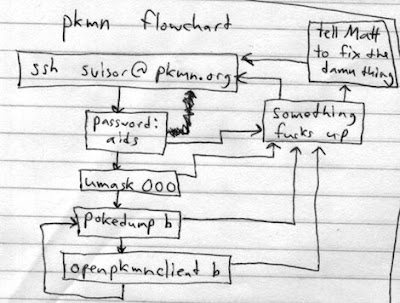 pkmn flowchart
tell Matt
to fix the
damn thing
ssh suisor@pkmn.org
password:
aids
something
fucks up
umask 000
pokedump b
openpkmnclient b